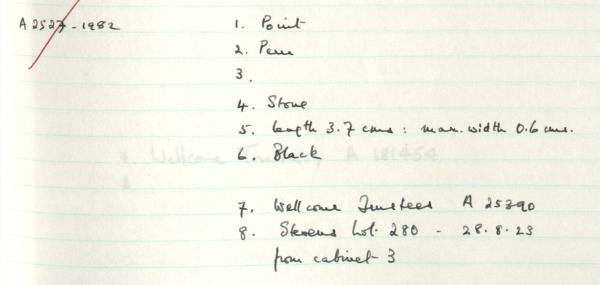 A2527-1982
1. Point
2. Peru
3.
4. Stone
5. Length 3.7 cms : max. width 0.6 cms.
6. Black
7. Wellcome Trustees A 25390
8. Stevens Lot 280 - 28.8.23
from cabinet 3